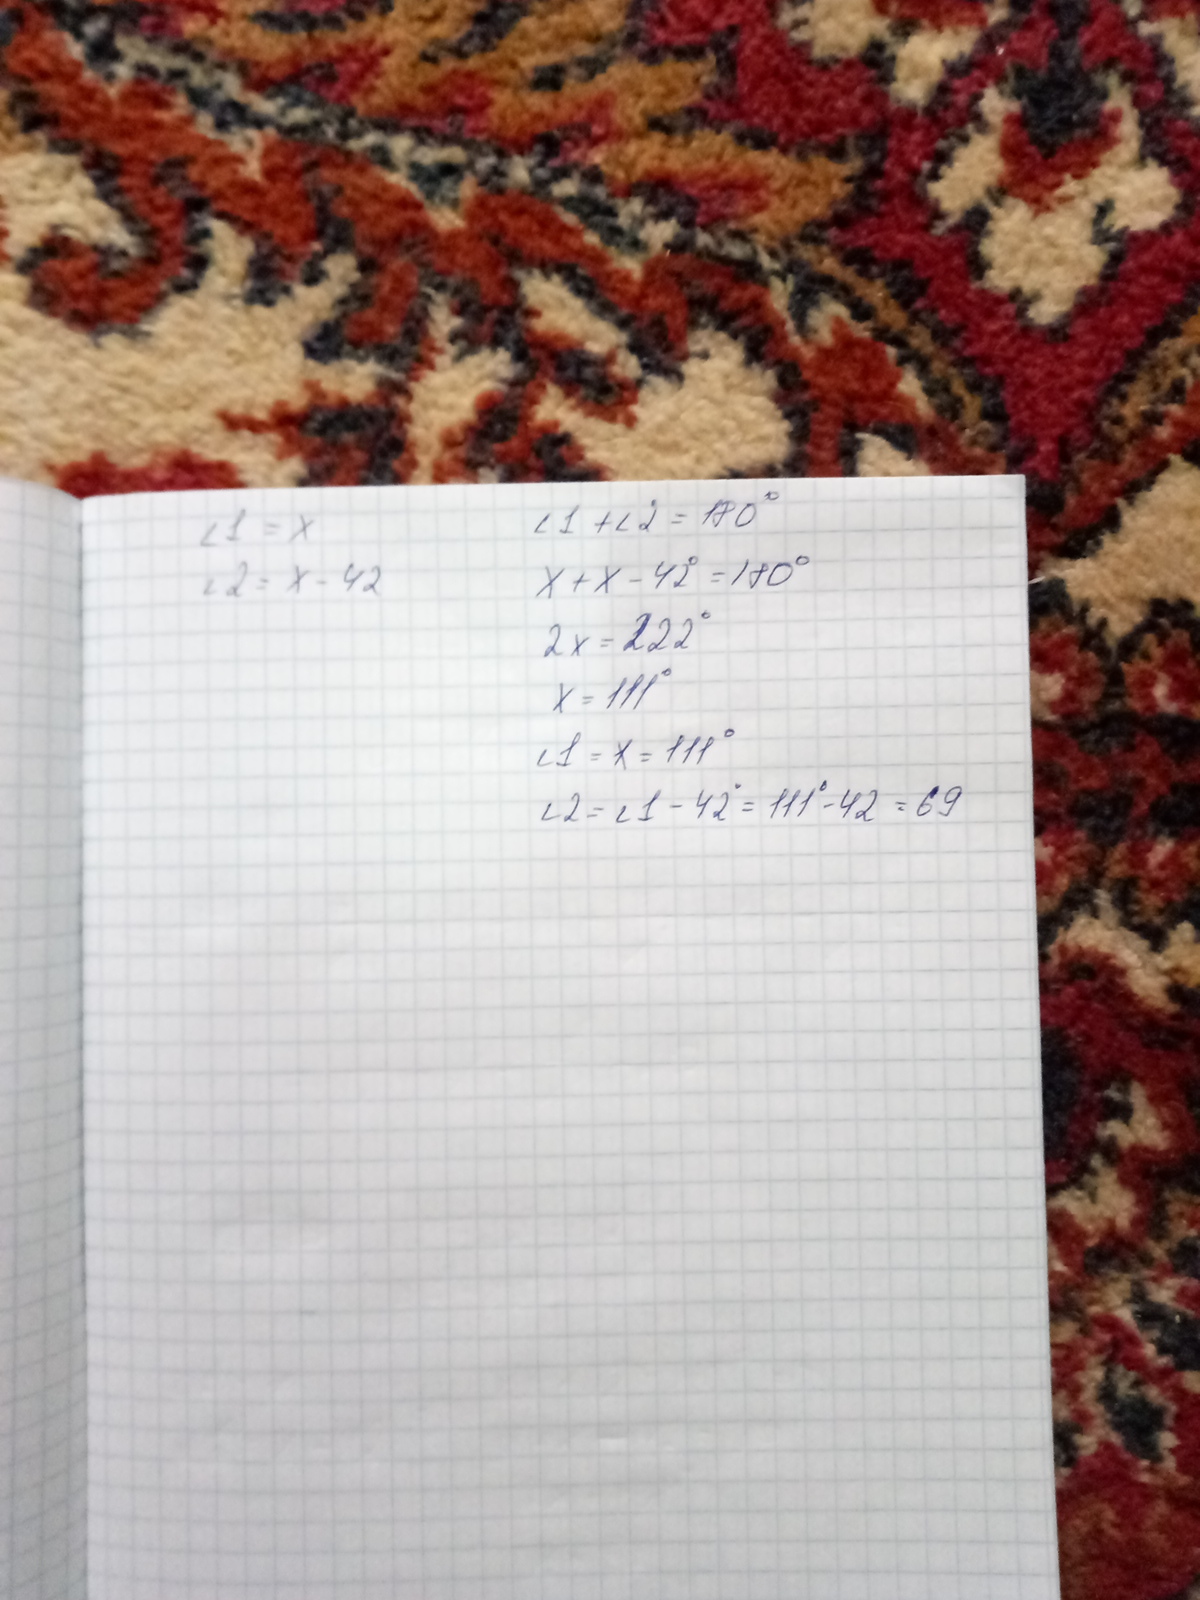 ∠1 = x
∠2 = x - 42
∠1 + ∠2 = 180°
x + x - 42° = 180°
2x = 222°
x = 111°
∠1 = x = 111°
∠2 = ∠1 - 42° = 111° - 42 = 69